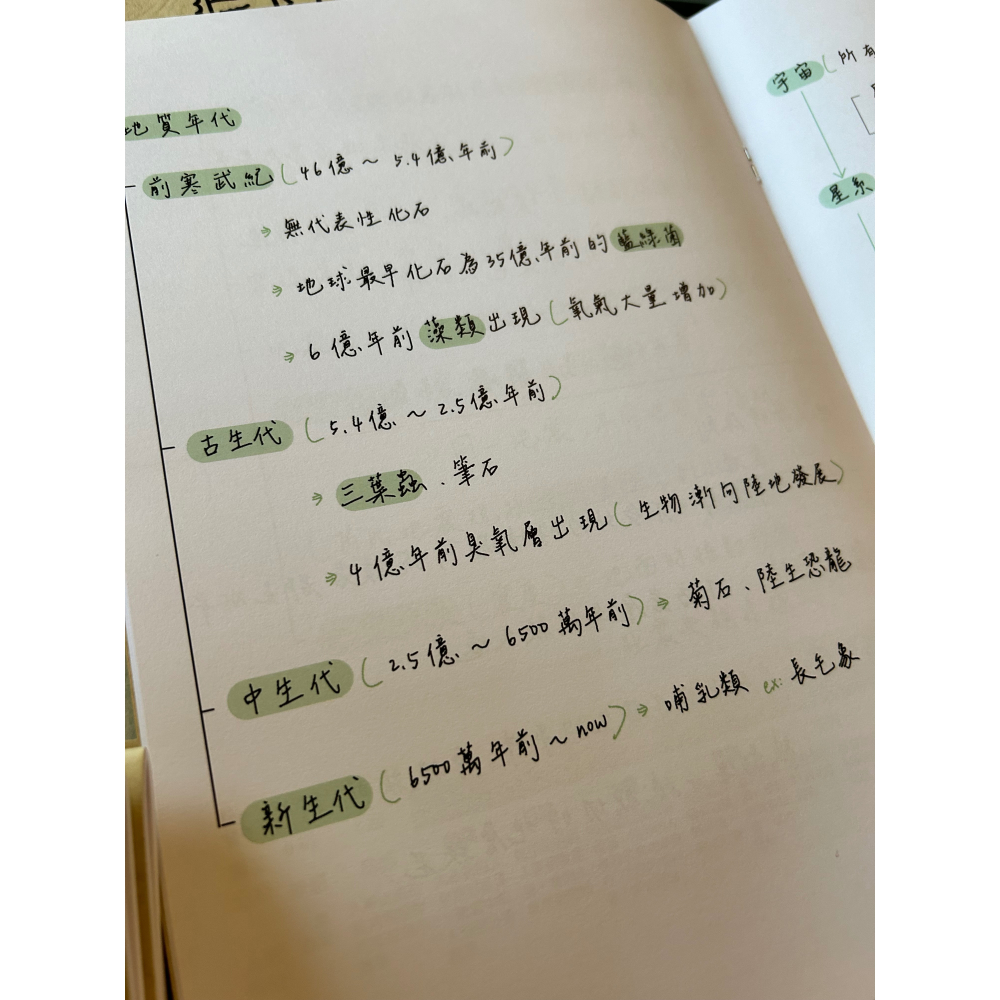 地質年代
前寒武紀(46億～5.4億年前)
⇒ 無代表性化石
⇒ 地球最早化石為35億年前的藍綠菌
⇒ 6億年前藻類出現(氧氣大量增加)
古生代(5.4億～2.5億年前)
⇒ 三葉蟲、筆石
⇒ 4億年前臭氧層出現(生物漸向陸地發展)
中生代(2.5億～6500萬年前) ⇒ 菊石、陸生恐龍
新生代(6500萬年前～now) ⇒ 哺乳類 ex: 長毛象
宇宙(所有
星系